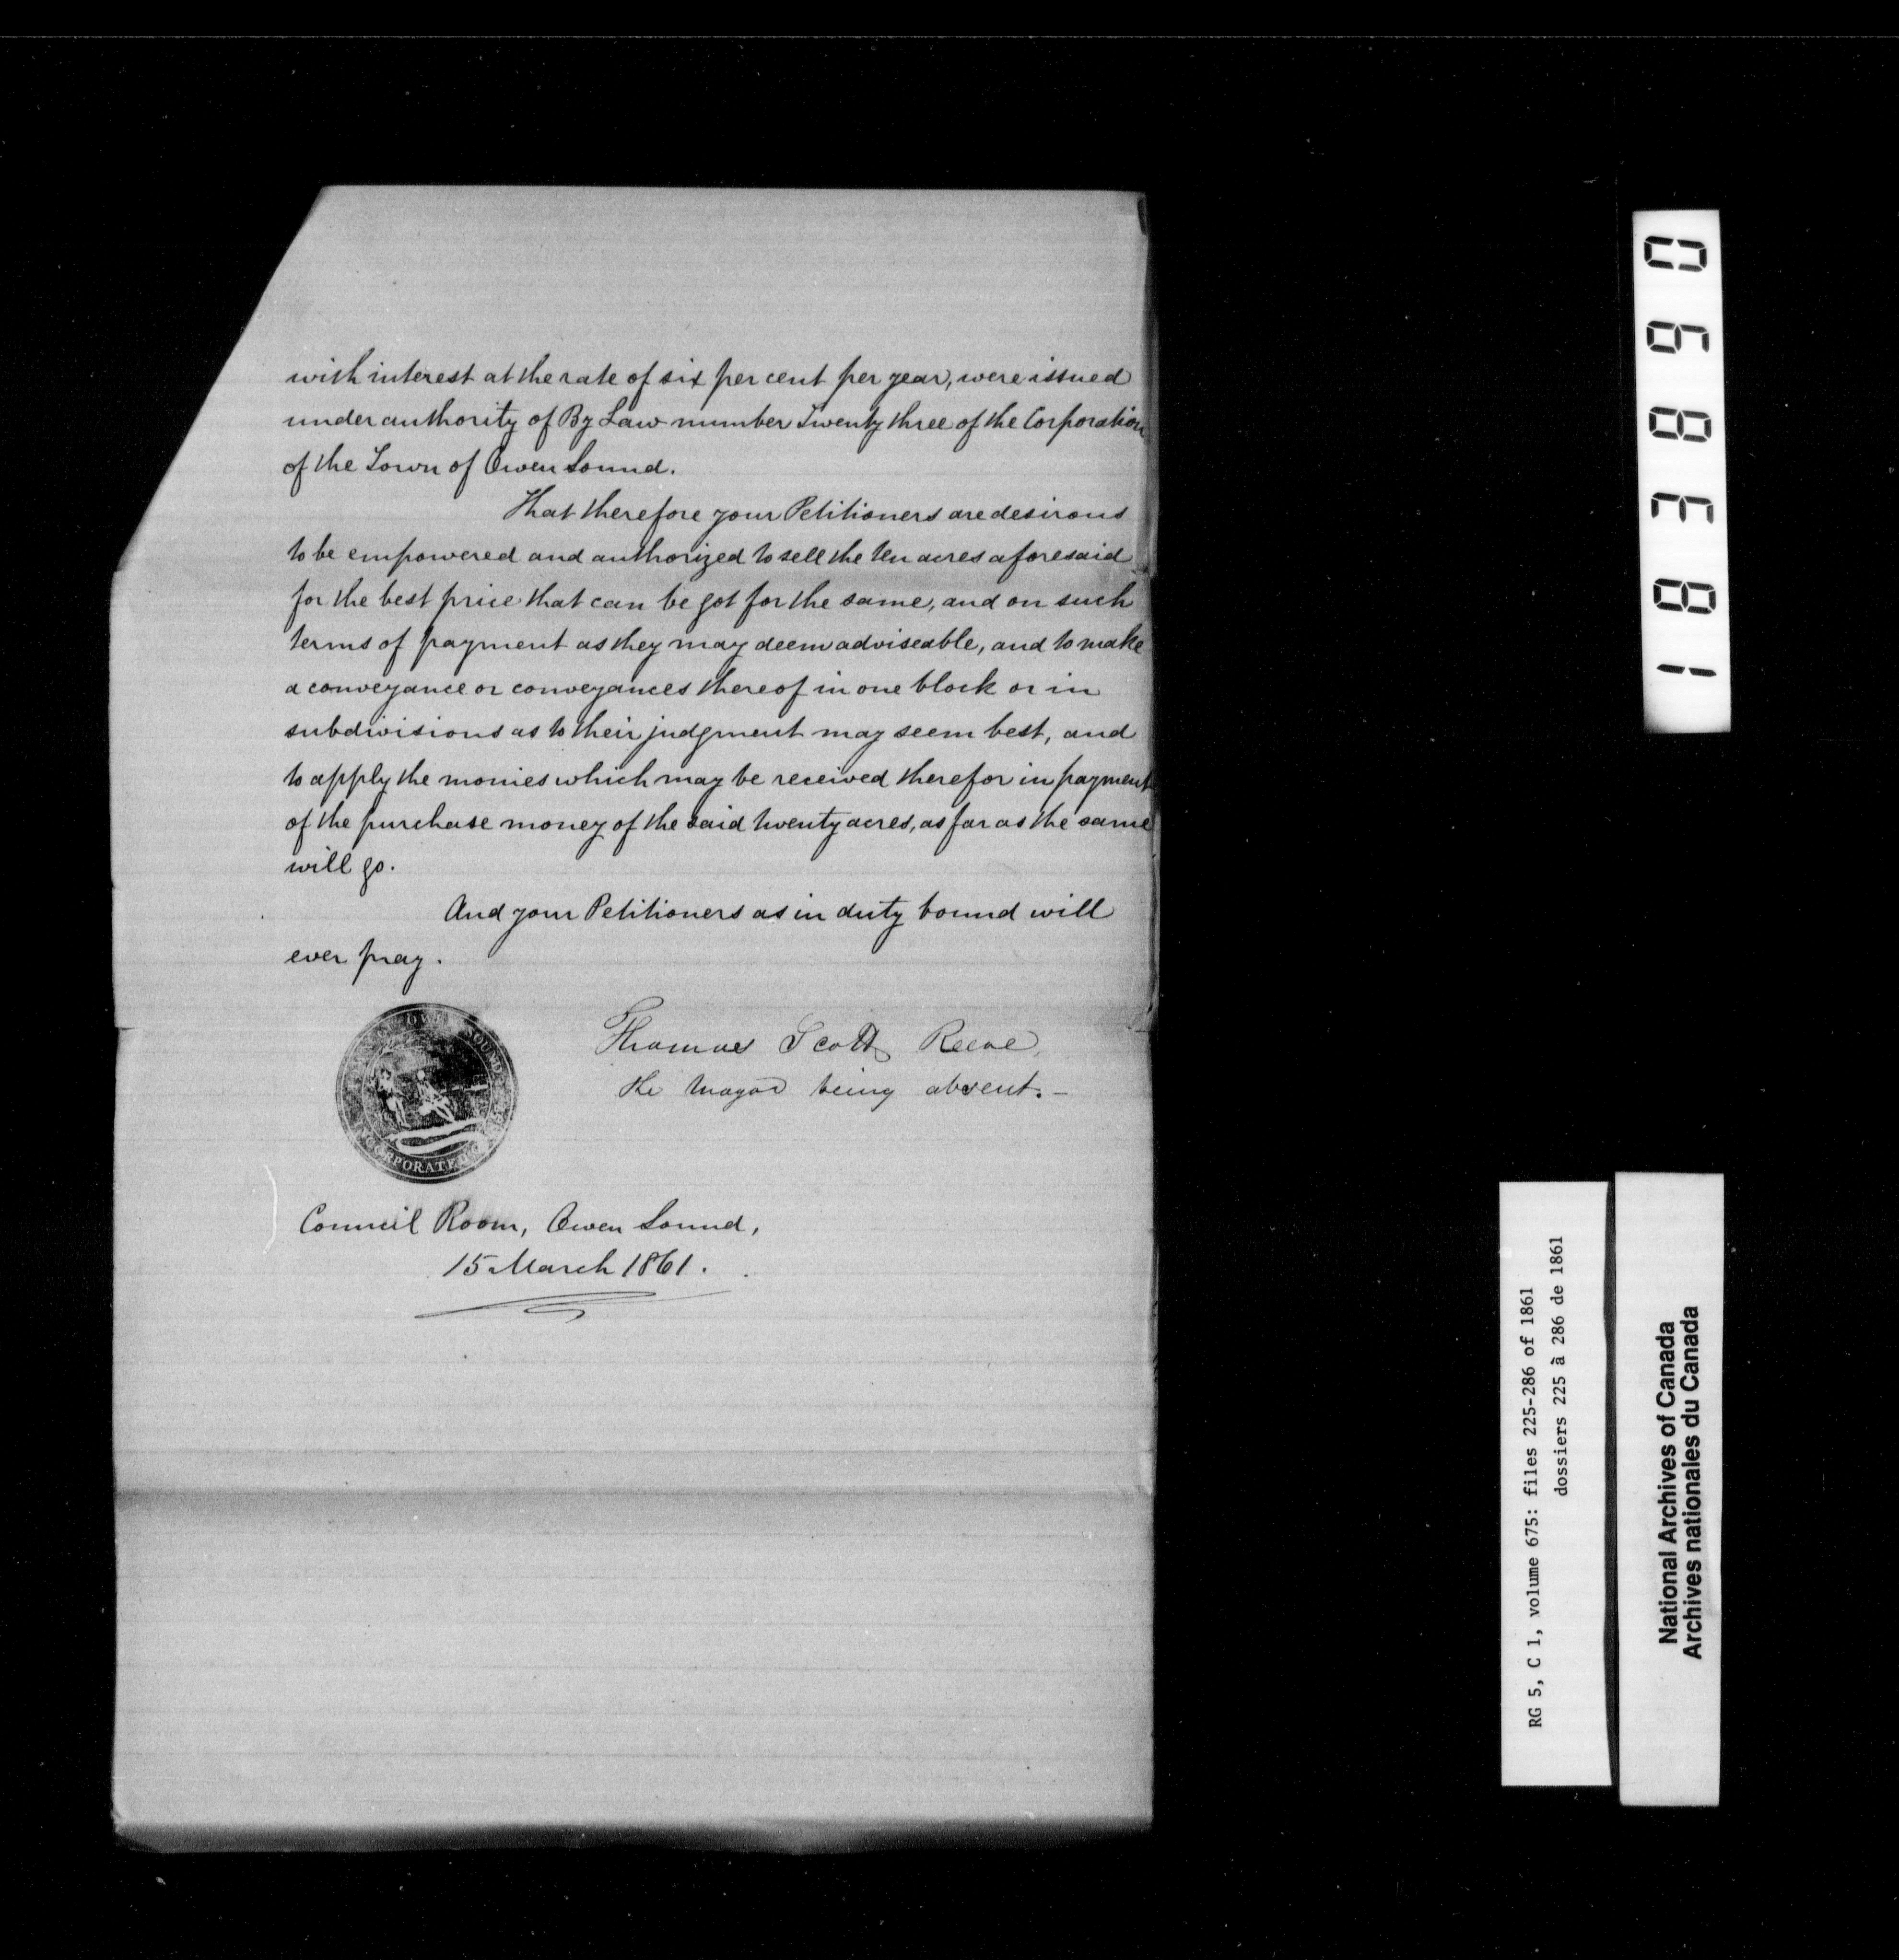 with interest at the rate of six per cent per year, were issued
under authority of By Law number Twenty three of the Corporation
of the Town of Owen Sound.
That therefore your Petitioners are desirous
to be empowered and authorized to sell the ten acres aforesaid
for the best price that can be got for the same, and on such
terms of payment as they may deem adviseable, and to make
a conveyance or conveyances thereof in one block or in
subdivisions as to their judgment may seem best, and
to apply the monies which may be received therefor in payment
of the purchase money of the said twenty acres, as far as the same
will go.
And your Petitioners as in duty bound will
ever pray.
OWEN SOUND
INCORPORATED
Thomas Scott Reeve,
the Mayor being absent. -
Council Room, Owen Sound,
15 March 1861.
183890
RG 5, C 1, volume 675: files 225-286 of 1861
dossiers 225 à 286 de 1861
National Archives of Canada
Archives nationales du Canada